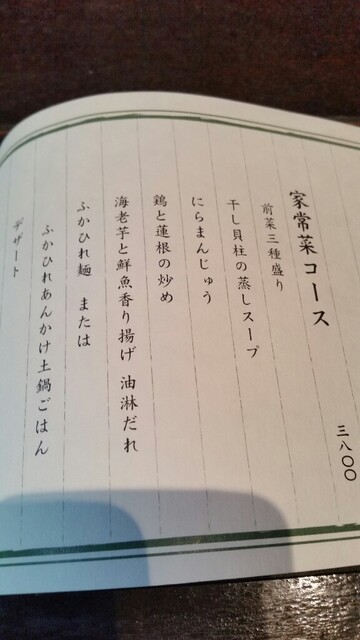 家常菜コース
三八〇〇
前菜三種盛り
干し貝柱の蒸しスープ
にらまんじゅう
鶏と蓮根の炒め
海老芋と鮮魚香り揚げ 油淋だれ
ふかひれ麺 または
ふかひれあんかけ土鍋ごはん
デザート